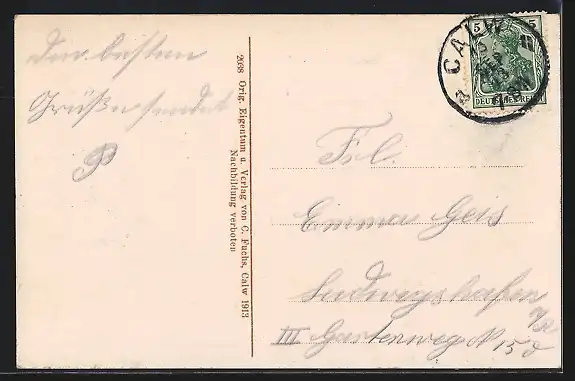 Den besten
Grüße sendet
P
2098 Orig. Eigentum u. Verlag von C. Fuchs, Calw 1913
Nachbildung verboten
CALW
5 5
DEUTSCHES REICH
Frl.
Emma Geis
Ludwigshafen
a/Rh
III Gartenweg N 15